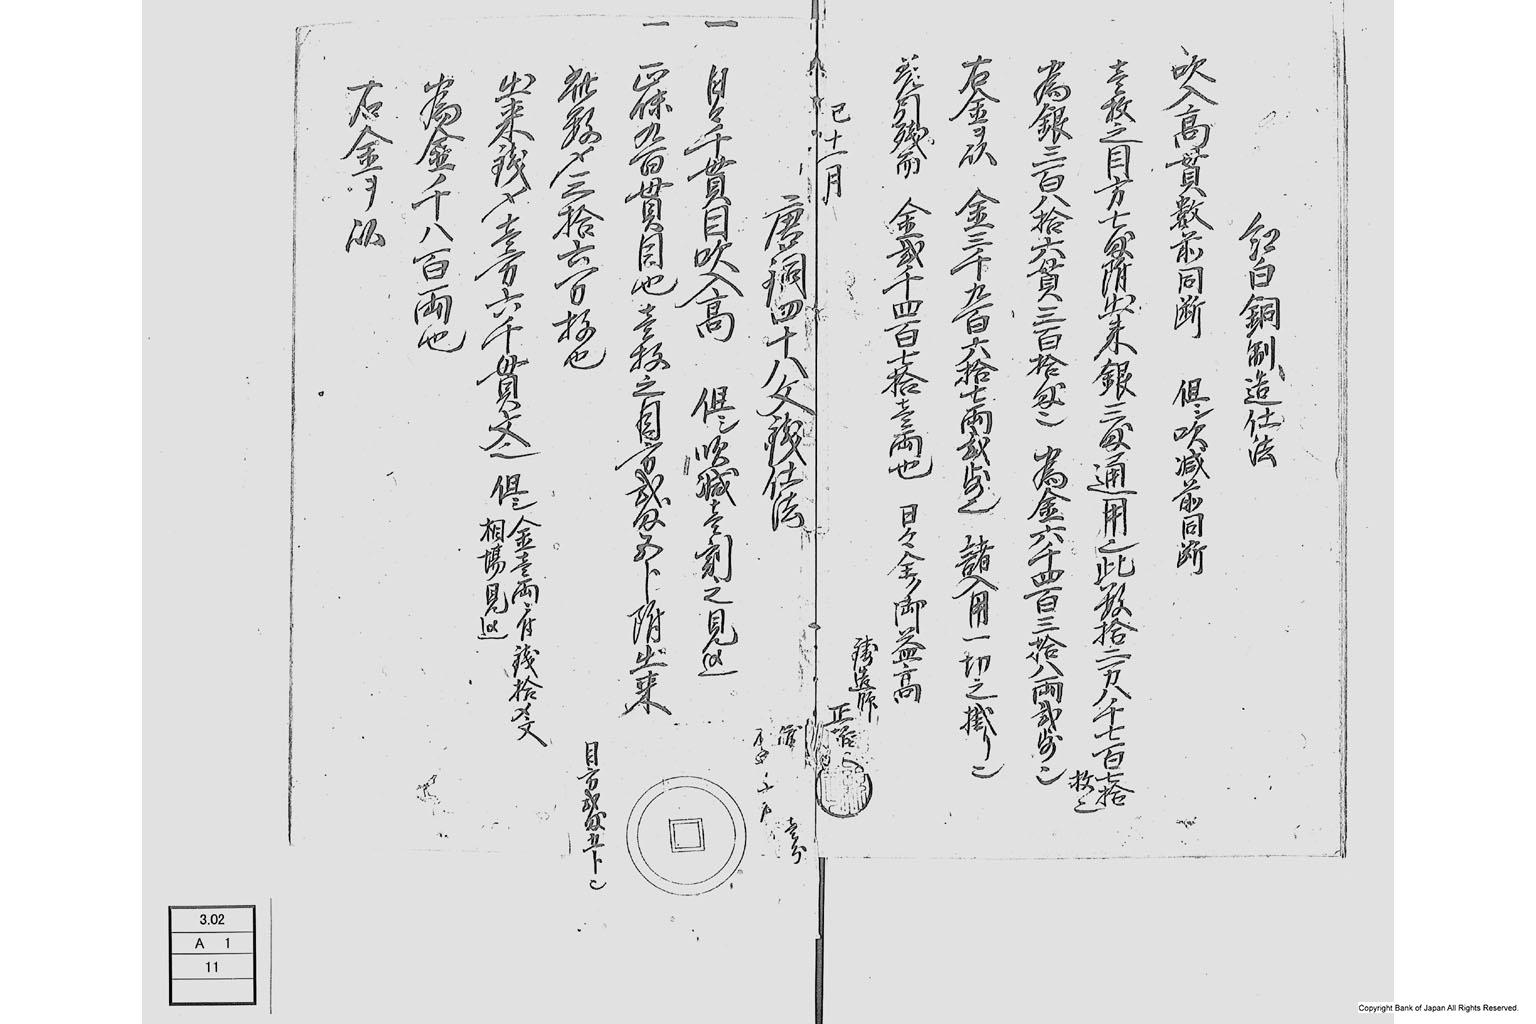 紅白銅製造仕法
吹入高貫数前同断 但シ吹減前同断
壱枚之目方七匁附出来銀三匁通用〆此数拾二万八千七百七拾
枚也
為銀三百八拾六貫三百拾匁也 為金六千四百三拾八両弐歩也
右金ヲ以 金三千九百六拾七両弐歩也 諸入用一切之掛り也
差引残而 金弐千四百七拾壱両也 日々金ノ御益高
鋳造師
正
巳十一月
唐銅四十八文銭仕法
一 日々千貫目吹入高 但シ吹減壱割之見込
一 正味九百貫目也 壱枚之目方弐匁五ト附出来
此数〆三拾六万枚也
出来銭〆壱万六千貫文也 但シ金壱両ニ付銭拾〆文
相場見込
為金ノ千八百両也
右金ヲ以
壱分
目方弐匁五ト也
3.02
A 1
11
Copyright Bank of Japan All Rights Reserved.